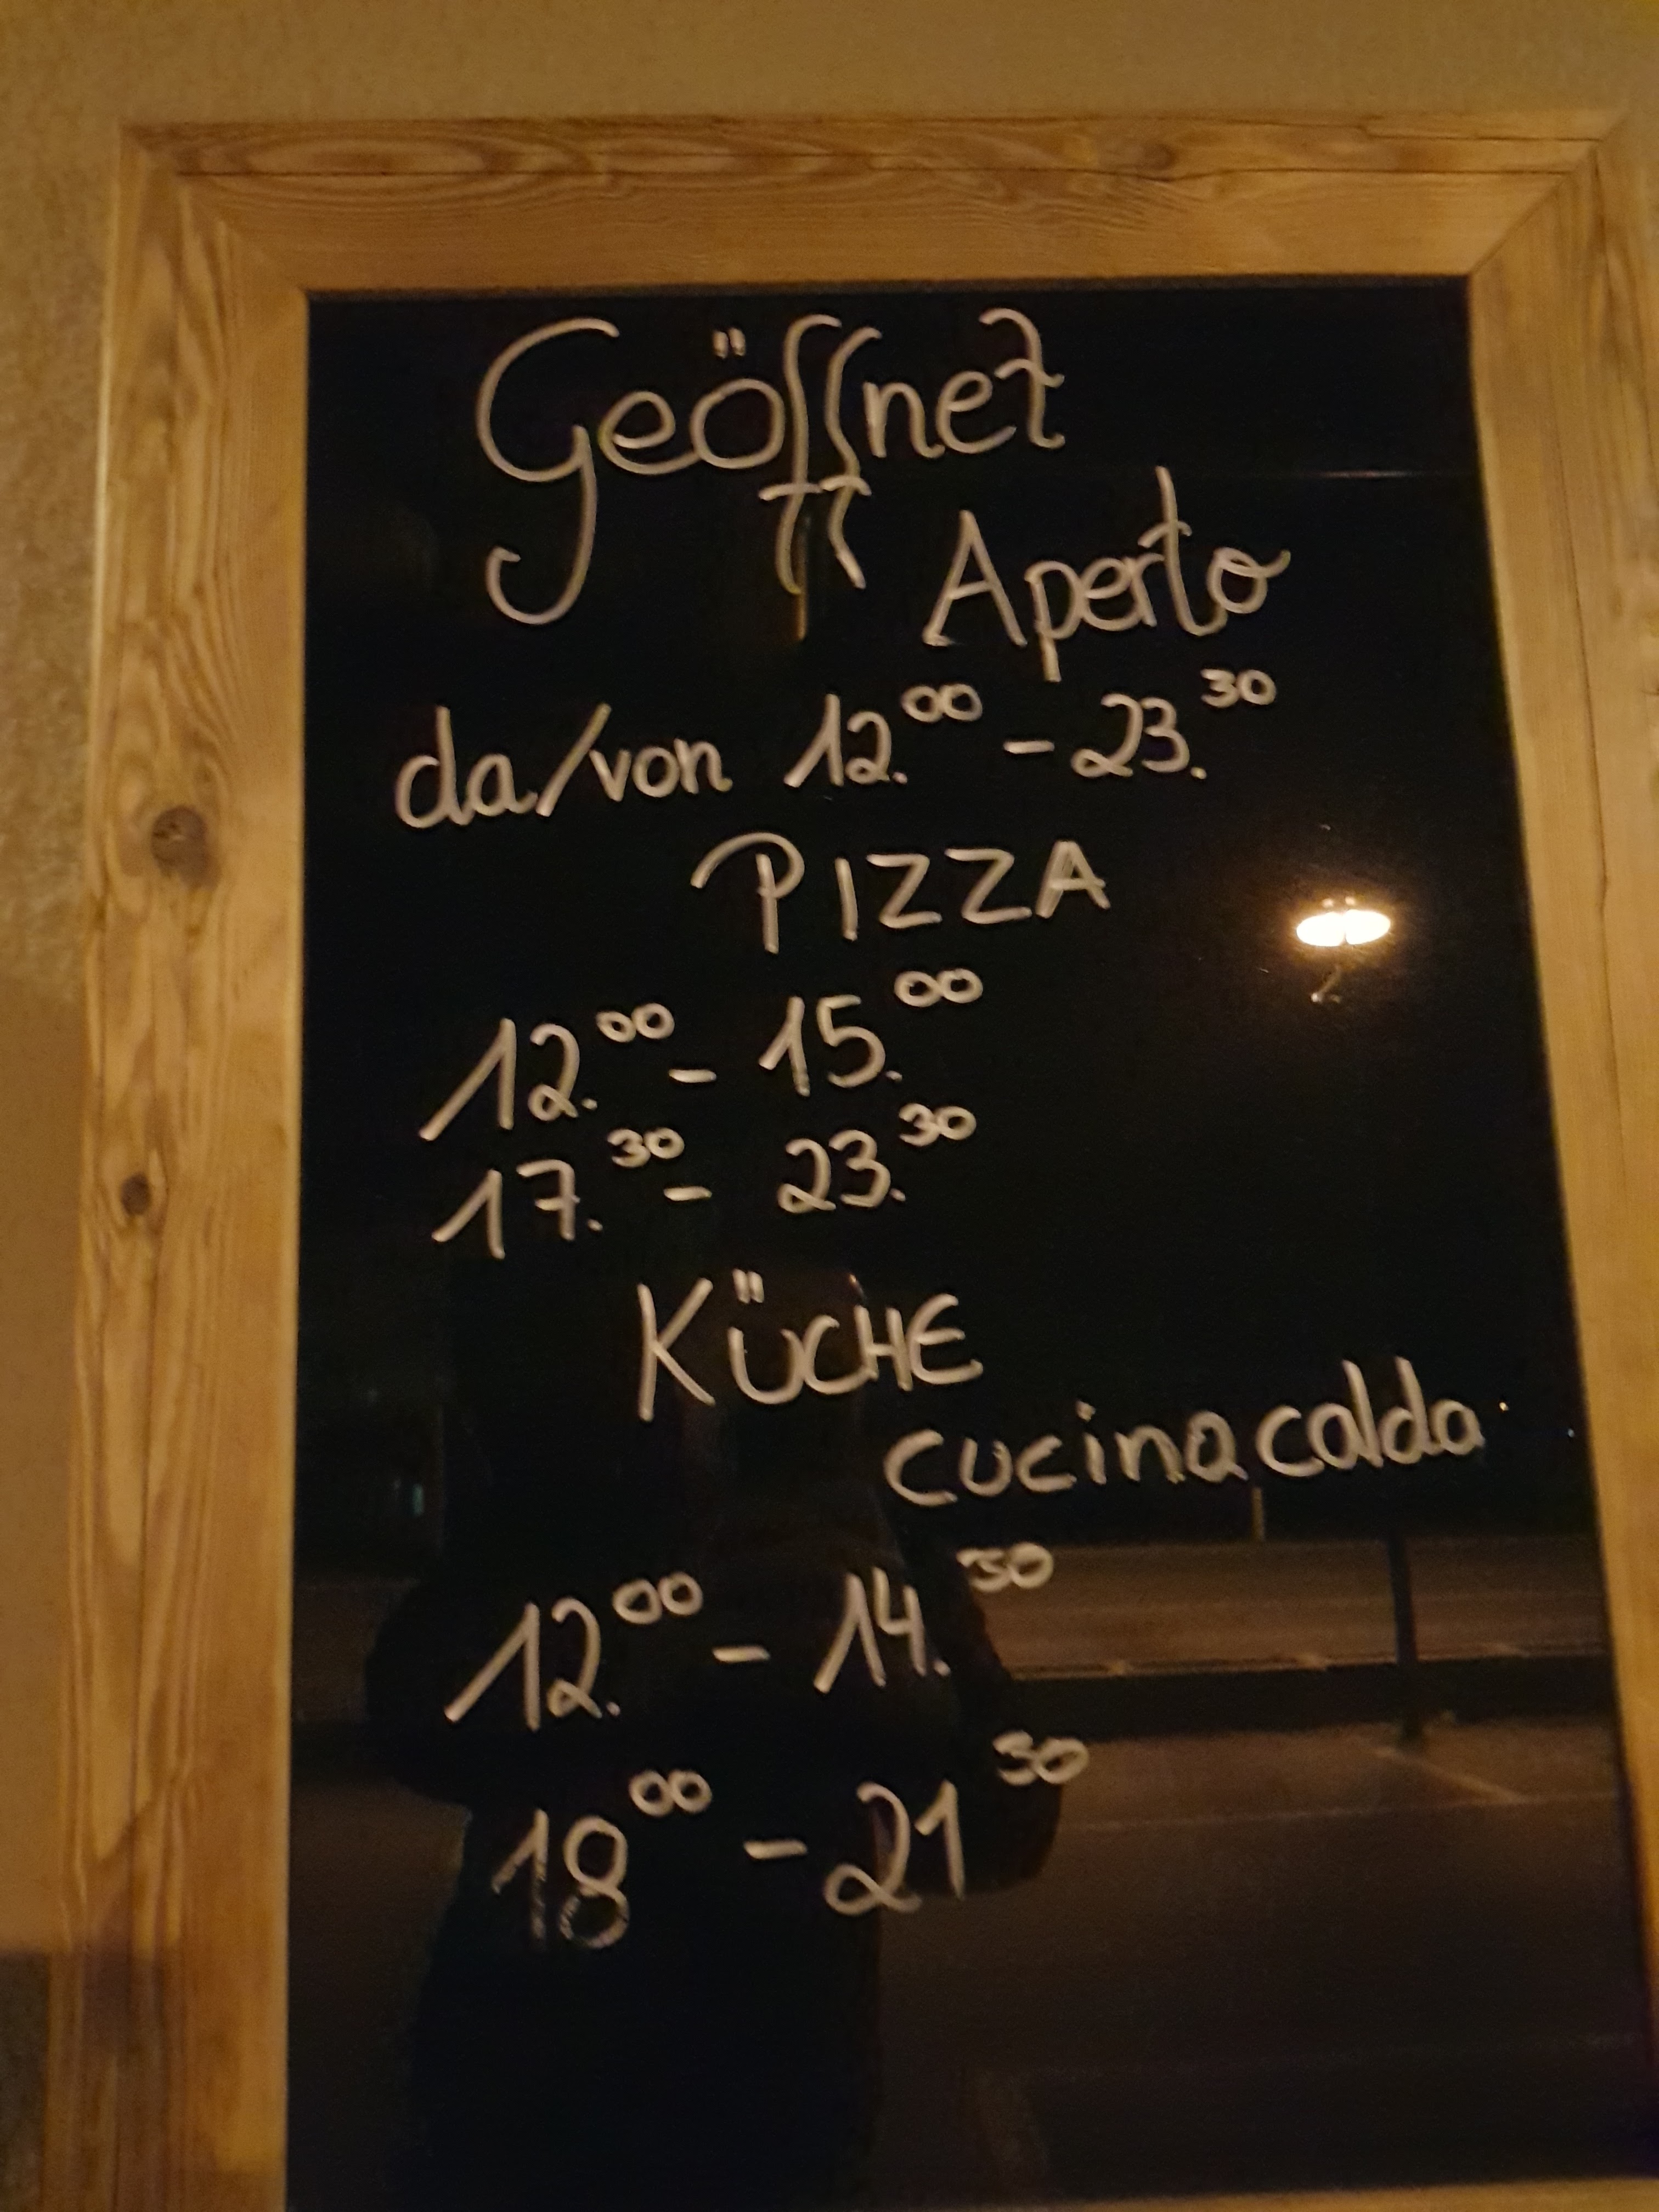 Geöffnet
Aperto
da/von 12.00 - 23.30
PIZZA
12.00 - 15.00
17.30 - 23.30
KÜCHE
cucina calda
12.00 - 14.30
18 00 - 21 30